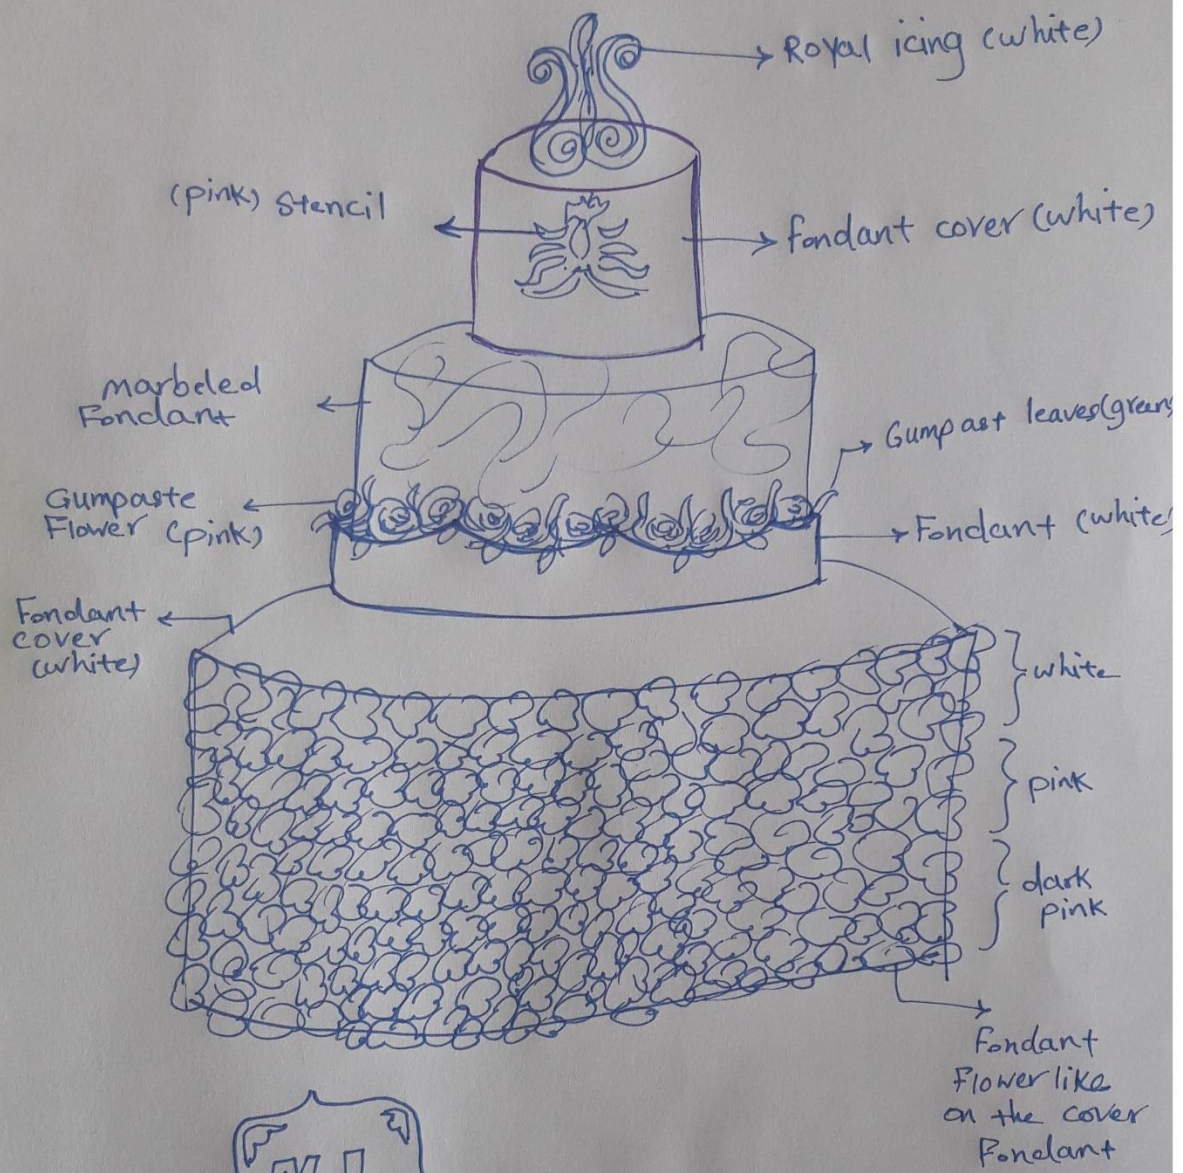 Royal icing (white)
(pink) Stencil
fondant cover (white)
marbeled
Fondant
Gumpast leaves (green
Gumpaste
Flower (pink)
Fondant (white
Fondant
cover
(white)
white
pink
dark
pink
Fondant
Flower like
on the cover
Fondant